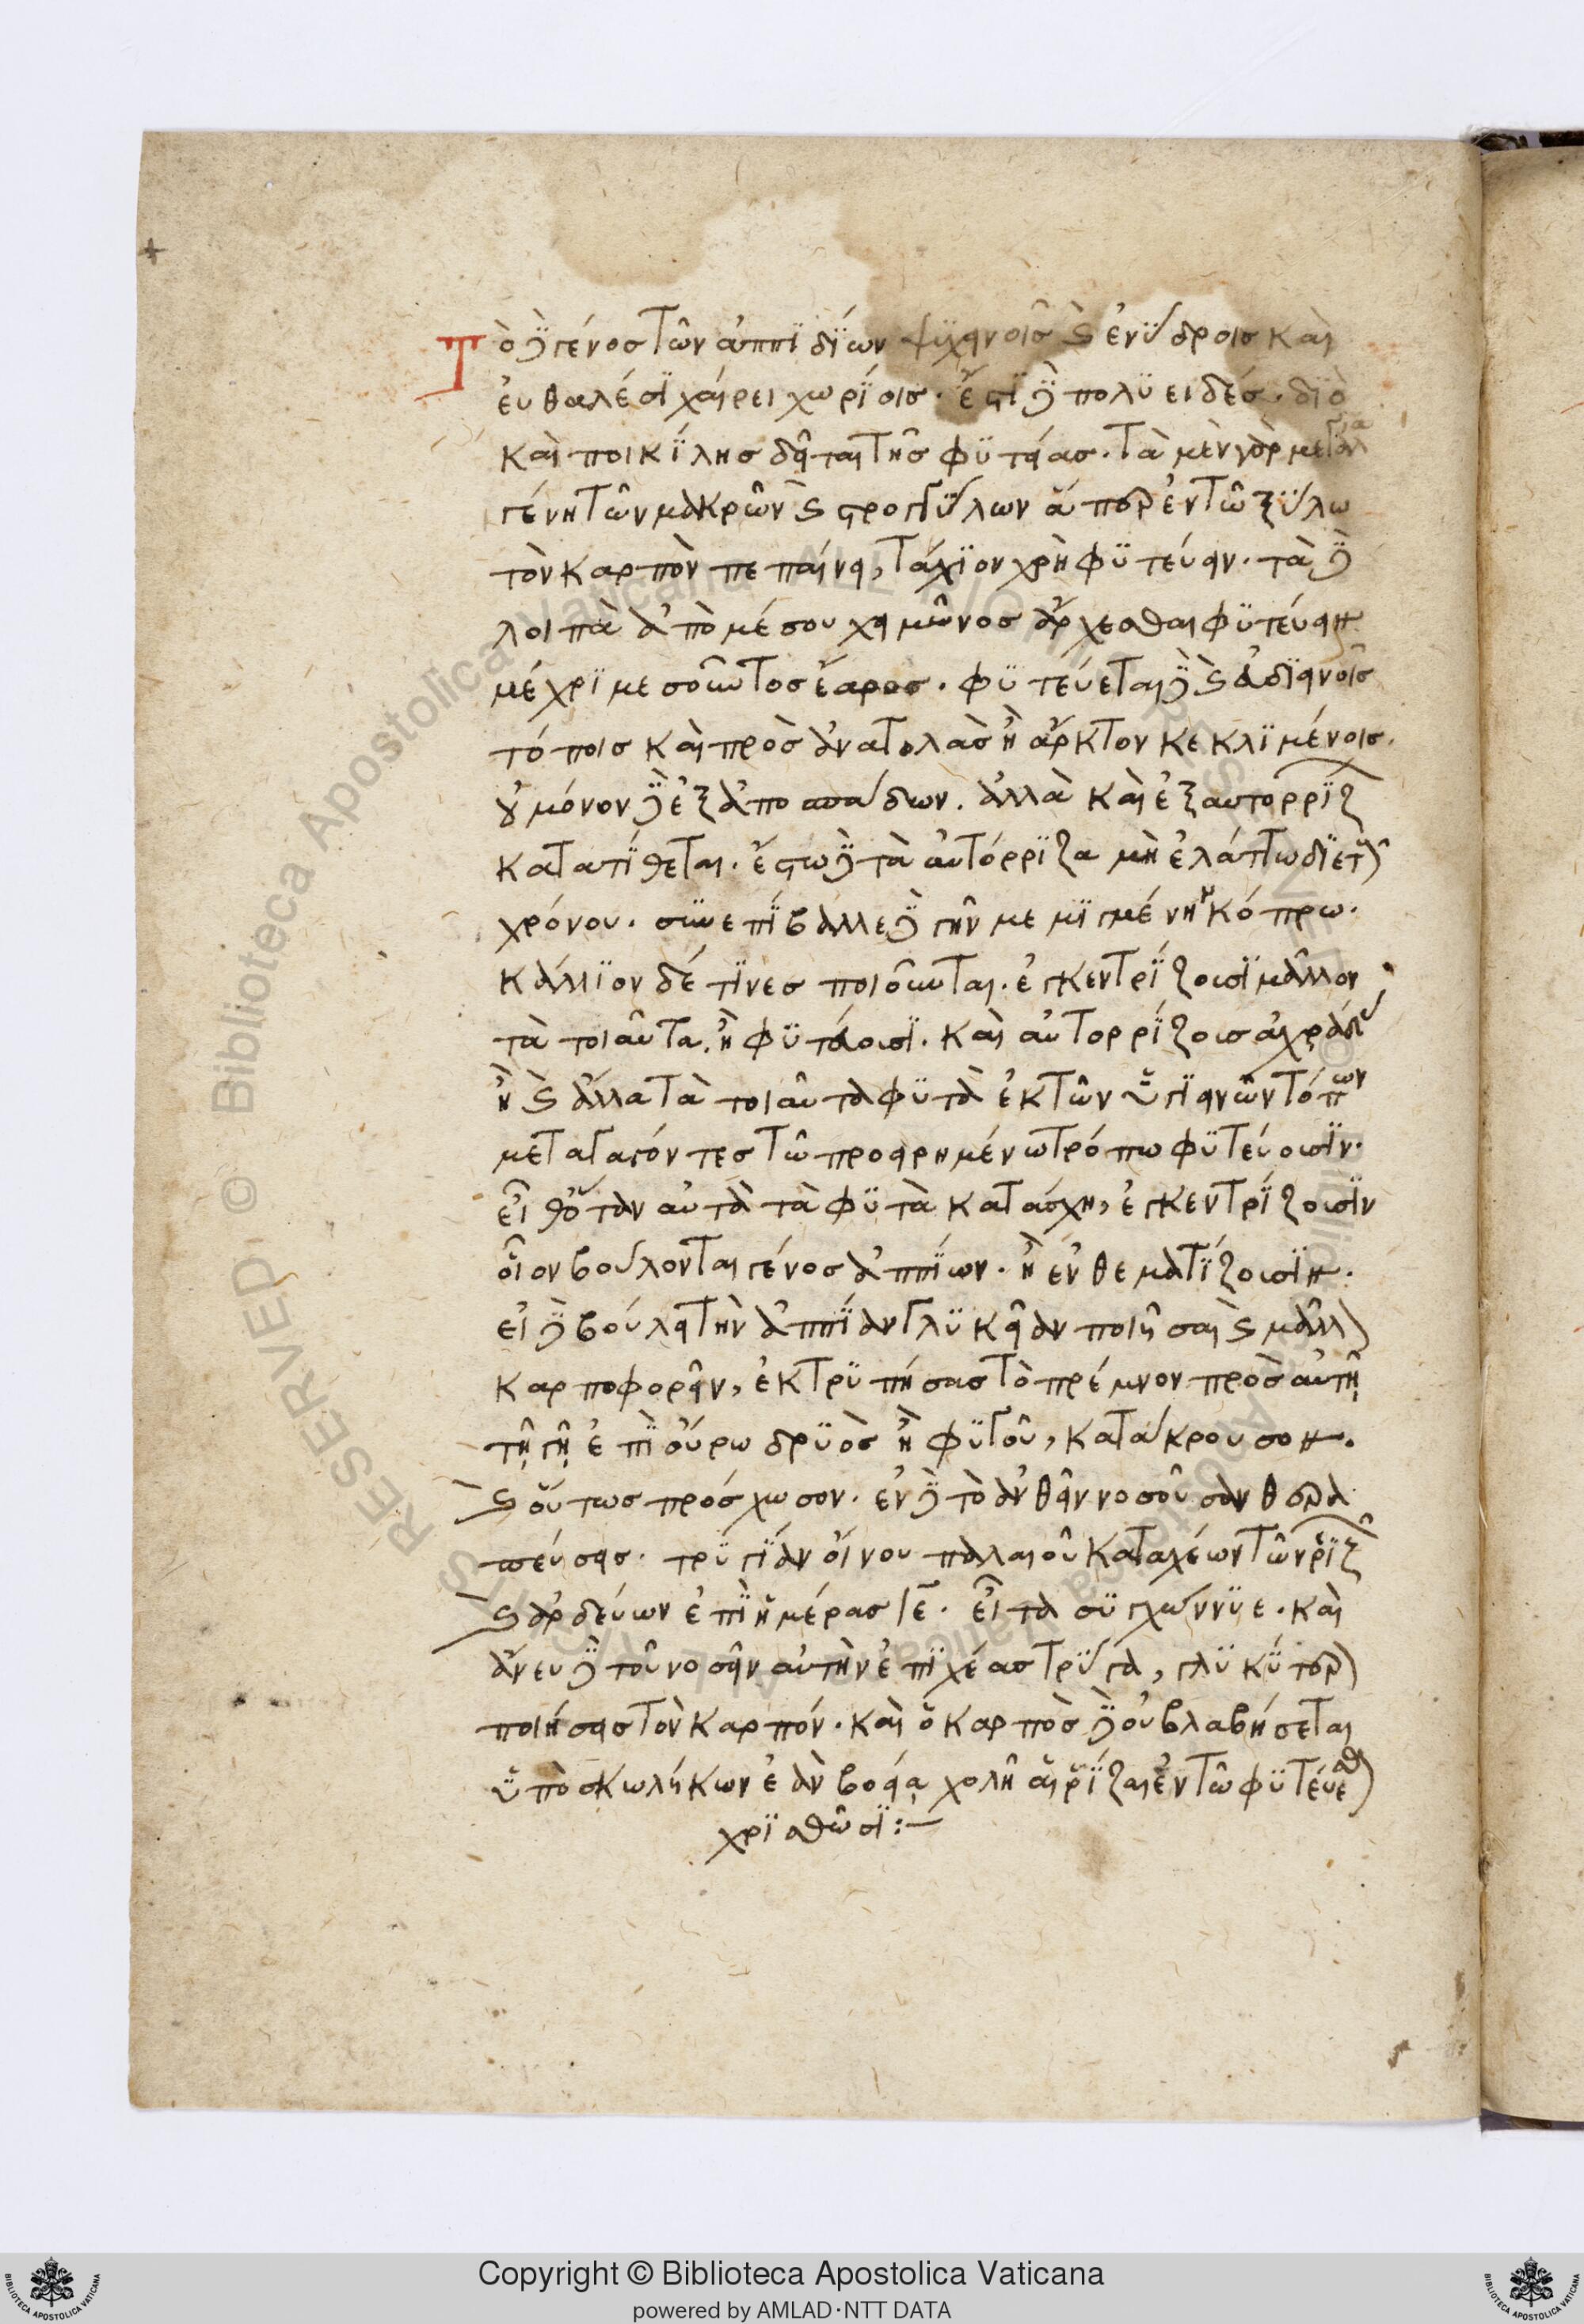 Τὸ δὲ γένος τῶν ἀππιδίων ψυχεινοῖς καὶ ἐνύδροις καὶ
εὐθαλέσι χαίρει χωρίοις. ἔστι δὲ πολυειδές. διὸ
καὶ ποικίλης δεῖται τῆς φυτείας. τὰ μὲν γὰρ μεγάλα
γένη τῶν μακρῶν καὶ στρογγύλων ἅπερ ἐν τῶ ξύλω
τὸν καρπὸν πεπαίνει, τάχιον χρὴ φυτεύειν. τὰ δὲ
λοιπὰ ἀπὸ μέσου χειμῶνος ἄρχεσθαι φυτεύειν
μέχρι μεσοῦντος ἔαρος. φυτεύεται δὲ καὶ ἀδιεινοῖς
τόποις καὶ πρὸς ἀνατολὰς ἢ ἄρκτον κεκλιμένοις.
οὐ μόνον δὲ ἐξ ἀποσπάδων. ἀλλὰ καὶ ἐξ αυτορρίζ
κατατίθεται. ἔστω δὲ τὰ αὐτόρριζα μὴ ἐλάττω διετοῦς
χρόνου. συνεπίβαλλε δὲ γῆν μεμιγμένην κόπρω.
κάλλιον δέ τινες ποιοῦνται. ἐγκεντρίζουσι μᾶλλον
τὰ τοιαῦτα, ἢ φυτεύουσι. καὶ αὐτορρίζοις ἀχράδας
ἢ καὶ ἄλλα τὰ τοιαῦτα φυτὰ ἐκ τῶν ὑγιεινῶν τόπων
μεταγαγόντες τῶ προειρημένω τρόπω φυτεύουσιν.
εἶθ' ὅταν αὐτὰ τὰ φυτὰ κατάσχη, ἐγκεντρίζουσιν
οἷον βούλονται γένος ἀππίων. ἢ ἐνθεματίζουσιν.
εἰ δὲ βούλει τὴν ἀππίδαν γλυκεῖαν ποιῆσαι καὶ μᾶλλον
καρποφορεῖν, ἐκτρυπήσας τὸ πρέμνον πρὸς αὐτῇ
τῇ γῇ ἐπιούρω δρυὸς ἢ φυτοῦ, κατάκρουσον.
καὶ οὕτως πρόσχωσον. ἐν δὲ τὸ ἀνθεῖν νοσοῦσαν θερα
πεύσεις. τρυγίαν οἴνου παλαιοῦ καταχέων τῶν ῥιζῶν
καὶ ἀρδεύων ἐπὶ ἡμέρας ιε. εἶτα συγχώννυε. καὶ
ἄνευ δὲ τοῦ νοσεῖν αὐτὴν ἐπιχέας τρύγα, γλυκύτερον
ποιήσεις τὸν καρπόν. καὶ ὁ καρπὸς δὲ οὐ βλαβήσεται
ὑπὸ σκωλήκων ἐὰν βοείᾳ χολῆ αἱ ῥίζαι ἐν τῶ φυτεύεσθαι
χρισθῶσι:—
Copyright © Biblioteca Apostolica Vaticana
powered by AMLAD·NTT DATA